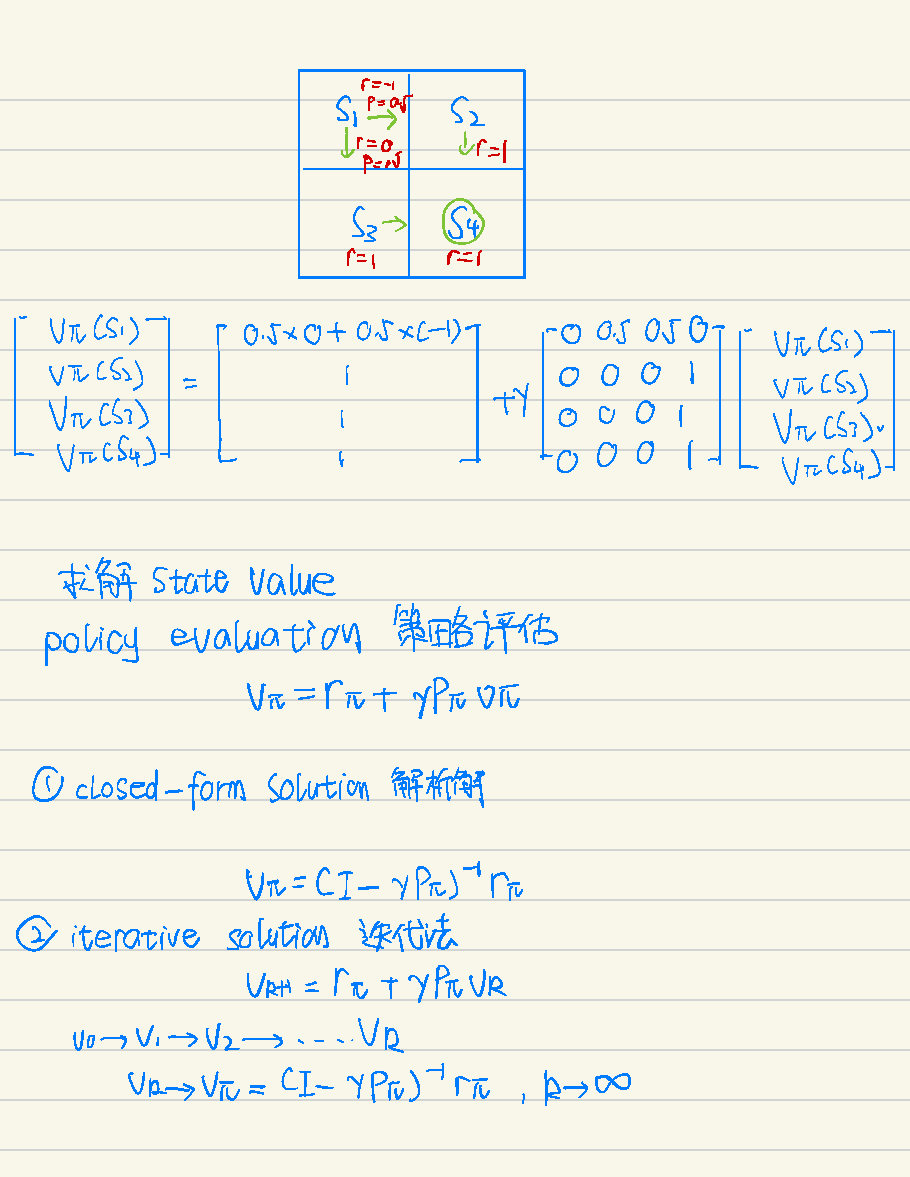 r=-1
p=0.5
S₁ → S₂
↓ r=0 ↓ r=1
p=0.5
S₃ → S₄
r=1 r=1
[Vπ(S₁) Vπ(S₂) Vπ(S₃) Vπ(S₄)] = [0.5×0+0.5×(-1) 1 1 1] + γ [0 0.5 0.5 0; 0 0 0 1; 0 0 0 1; 0 0 0 1] [Vπ(S₁) Vπ(S₂) Vπ(S₃) Vπ(S₄)]
求解 State Value
policy evaluation 策略评估
Vπ = rπ + γPπ vπ
① closed-form Solution 解析解
Vπ = (I - γPπ)⁻¹ rπ
② iterative solution 迭代法
Vk+1 = rπ + γPπ Vk
V0 → V1 → V2 → ···· Vk
Vk → Vπ = (I - γPπ)⁻¹ rπ , k → ∞